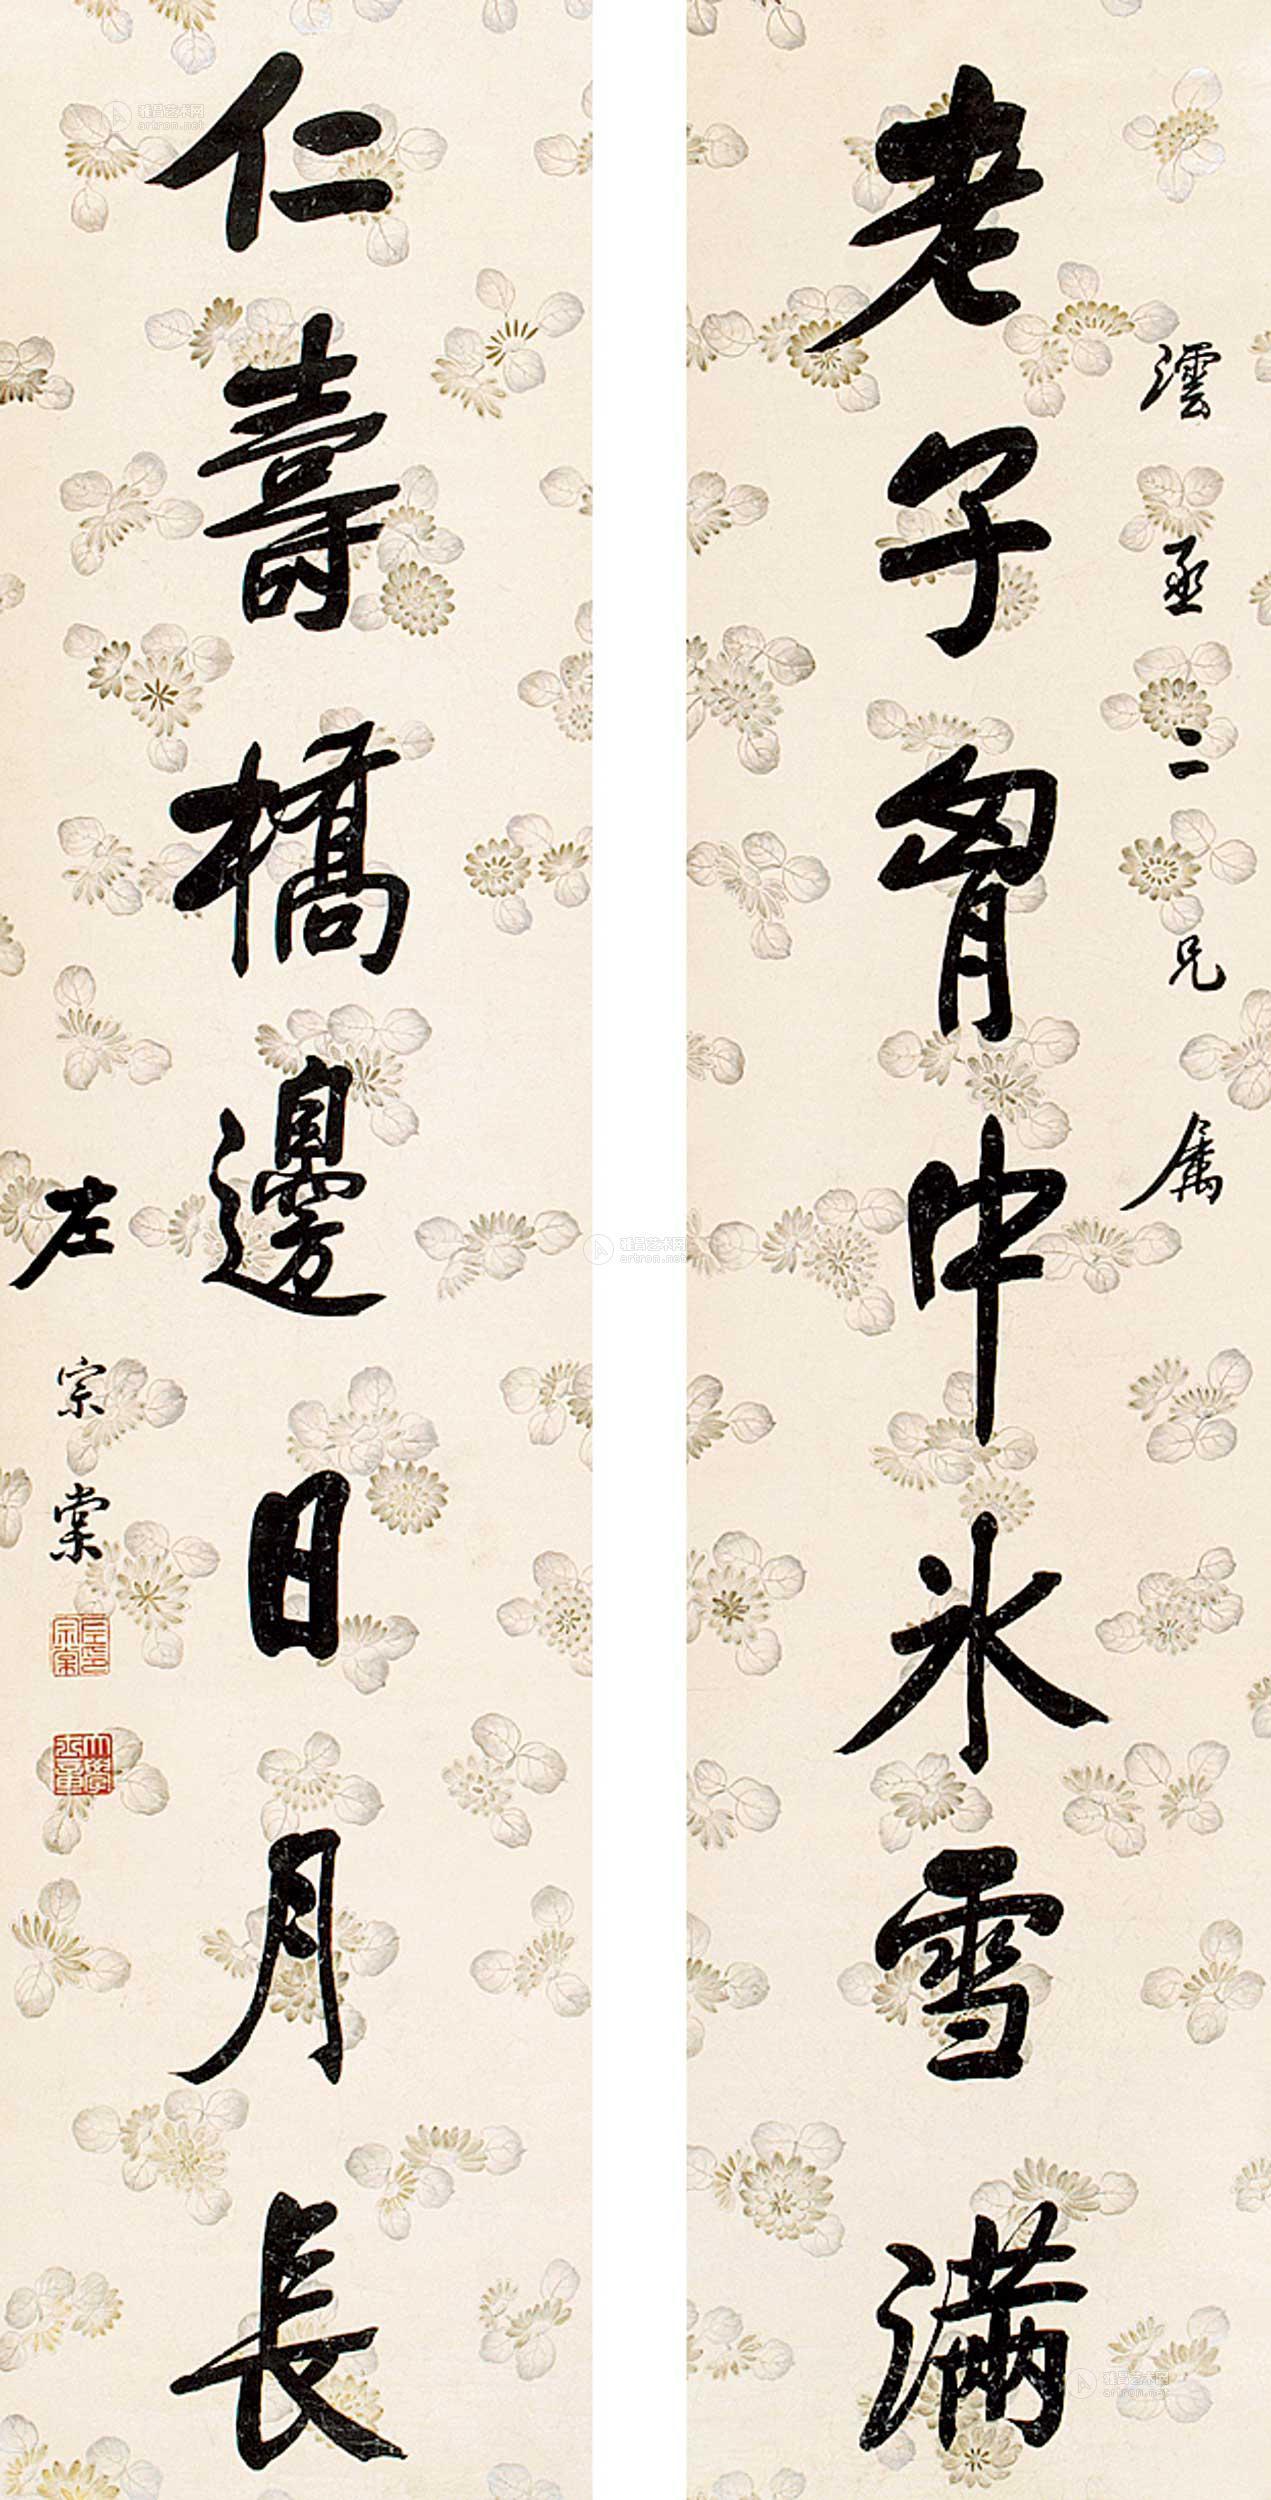 澐丞二兄属
老子胷中冰雪滿
仁壽橋邊日月長
左宗棠
左宗棠印
大學士章
雅昌艺术网
artron.net
雅昌艺术网
artron.net
雅昌艺术网
artron.net